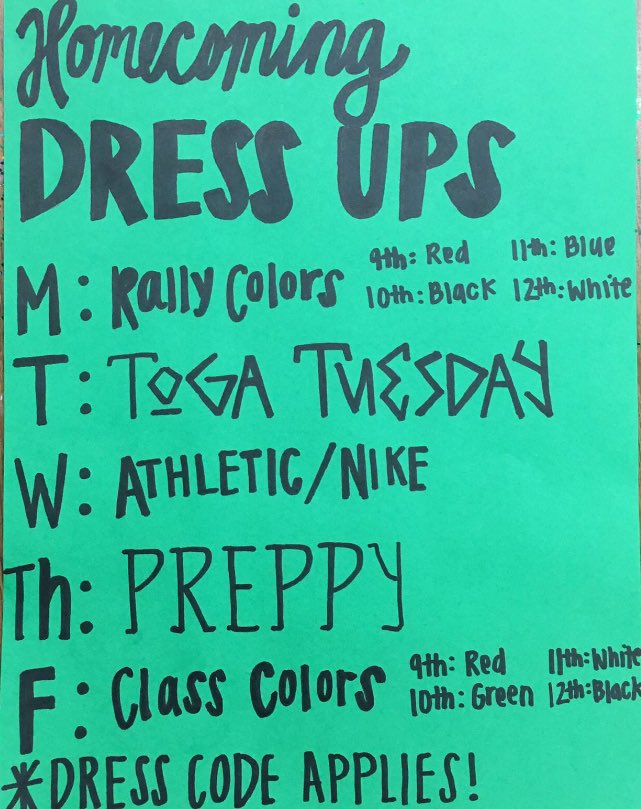 Homecoming
DRESS UPS
M: Rally Colors 9th: Red 11th: Blue
10th: Black 12th: White
T: TOGA TUESDAY
W: ATHLETIC/NIKE
Th: PREPPY
F: Class Colors 9th: Red 11th: White
10th: Green 12th: Black
*DRESS CODE APPLIES!